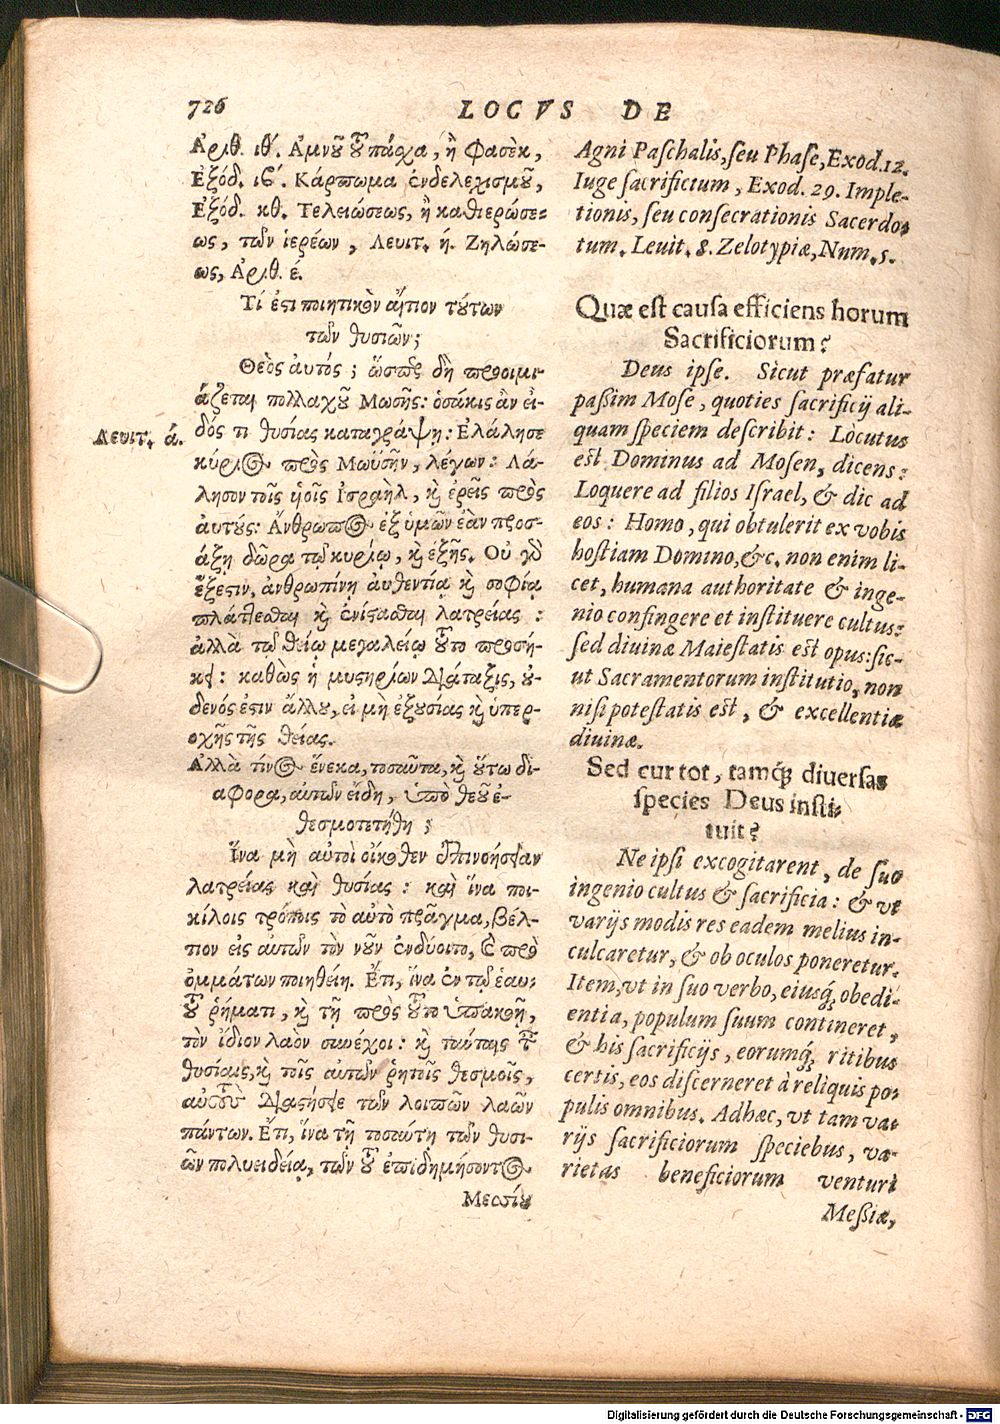 726
LOCVS DE
Ἀριθ. ιθ΄. Ἀμνοῦ τοῦ πάσχα, ἢ Φασὲκ,
Ἐξόδ. ιβ΄. Κάρπωμα ἐνδελεχισμοῦ,
Ἐξόδ. κθ. Τελειώσεως, ἢ καθιερώσε-
ως, τῶν ἱερέων, Λευιτ. ή. Ζηλώσε-
ως, Ἀριθ. έ.
Τί ἐστι ποιητικὸν αἴτιον τούτων
τῶν θυσιῶν;
Θεὸς ἀυτός; ὥσπερ δὴ προοιμι-
άζεται πολλαχοῦ Μωσῆς: ὁσάκις ἂν εἶ-
δός τι θυσίας καταγράψῃ: Ἐλάλησε
Λευιτ. ά.
κύριος πρὸς Μωϋσῆν, λέγων: Λά-
λησον τοῖς ὑοῖς Ἰσραὴλ, καὶ ἐρεῖς πρὸς
ἀυτούς: Ἄνθρωπος ἐξ ὑμῶν ἐὰν προσ-
άξῃ δῶρα τῷ κυρίῳ, καὶ ἑξῆς. Οὐ γὰρ
ἔξεστιν, ἀνθρωπίνῃ ἀυθεντίᾳ καὶ σοφίᾳ
πλάττεσθαι καὶ ἐνίστασθαι λατρείας:
ἀλλὰ τῷ θείῳ μεγαλείῳ τοῦτο προσή-
κει: καθὼς ἡ μυστηρίων διάταξις, οὐ-
δενός ἐστιν ἄλλου, εἰ μὴ ἐξουσίας καὶ ὑπερ-
οχῆς τῆς θείας.
Ἀλλὰ τίνος ἕνεκα, τοσαῦτα, καὶ οὕτω δι-
άφορα, αὐτῶν εἴδη, ὑπὸ θεοῦ ἐ-
θεσμοτετήθη;
Ἵνα μὴ αὐτοὶ οἴκοθεν ἐπινοήσειαν
λατρείας καὶ θυσίας: καὶ ἵνα ποι-
κίλοις τρόποις τὸ αὐτὸ πρᾶγμα, βέλ-
τιον εἰς αὐτῶν τὸν νοῦν ἐνδύοιτο, καὶ πρὸ
ὀμμάτων ποιηθείη. Ἔτι, ἵνα ἐν τῷ ἑαυ-
τοῦ ῥήματι, καὶ τῇ πρὸς τοῦτο ὑπακοῇ,
τὸν ἴδιον λαὸν συνέχοι: καὶ ταύταις ταῖς
θυσίαις, καὶ τοῖς αὐτῶν ῥητοῖς θεσμοῖς,
αὐτοὺς διαστήσειε τῶν λοιπῶν λαῶν
πάντων. Ἔτι, ἵνα τῇ τοσαύτῃ τῶν θυσι-
ῶν πολυειδείᾳ, τῶν τοῦ ἐπιδημήσοντος
Μεσσίου
Agni Paschalis, seu Phase, Exod. 12.
Iuge sacrificium, Exod. 29. Imple-
tionis, seu consecrationis Sacerdo-
tum. Leuit. 8. Zelotypiæ, Num. 5.
Quæ est causa efficiens horum
Sacrificiorum?
Deus ipse. Sicut præfatur
passim Mose, quoties sacrificij ali-
quam speciem describit: Locutus
est Dominus ad Mosen, dicens:
Loquere ad filios Israel, & dic ad
eos: Homo, qui obtulerit ex vobis
hostiam Domino, &c. non enim li-
cet, humana authoritate & inge-
nio confingere et instituere cultus:
sed diuinæ Maiestatis est opus: sic-
ut Sacramentorum institutio, non
nisi potestatis est, & excellentiæ
diuinæ.
Sed cur tot, tamq́; diuersas
species Deus insti-
tuit?
Ne ipsi excogitarent, de suo
ingenio cultus & sacrificia: & vt
varijs modis res eadem melius in-
culcaretur, & ob oculos poneretur.
Item, vt in suo verbo, eiusq́; obedi-
entia, populum suum contineret,
& his sacrificijs, eorumq́; ritibus
certis, eos discerneret à reliquis po-
pulis omnibus. Adhæc, vt tam va-
rijs sacrificiorum speciebus, va-
rietas beneficiorum venturi
Messiæ,
Digitalisierung gefördert durch die Deutsche Forschungsgemeinschaft - DFG